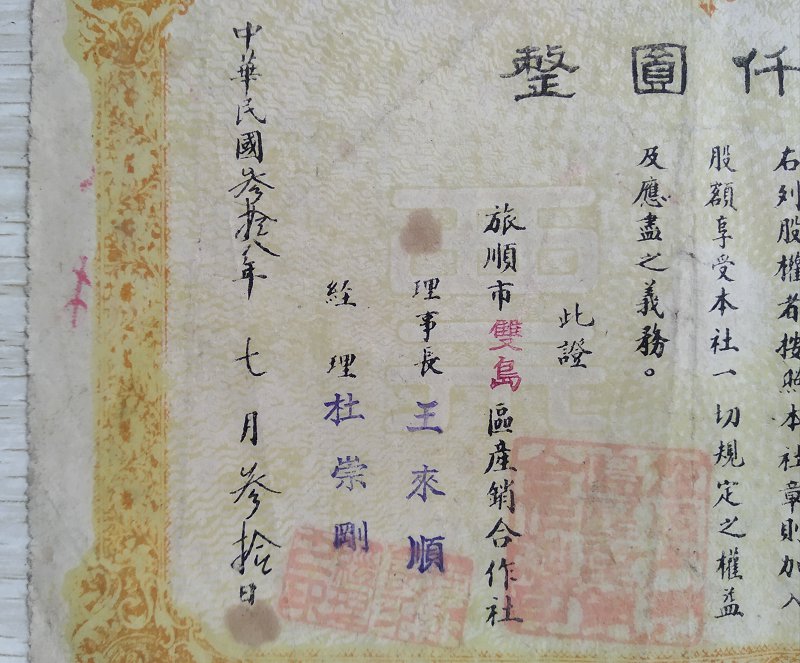 仟圓整
右列股權者按照本社章則加入
股額享受本社一切規定之權益
及應盡之義務。
此證
旅順市雙島區產銷合作社
理事長王來順
經理杜崇剛
中華民國叁拾八年七月叁拾日